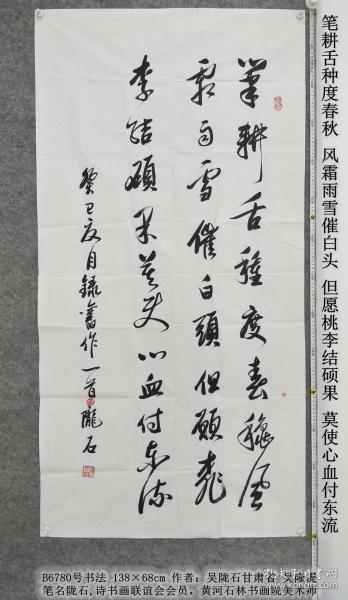 筆耕舌種度春穐風
霜雨雪催白頭但願桃
李结碩果莫使心血付东流
癸巳夏月録舊作一首隴石
笔耕舌种度春秋 风霜雨雪催白头 但愿桃李结硕果 莫使心血付东流
B6780号书法 138×68cm 作者：吴陇石甘肃省 吴隆湜
笔名陇石,诗书画联谊会会员，黄河石林书画院美术师